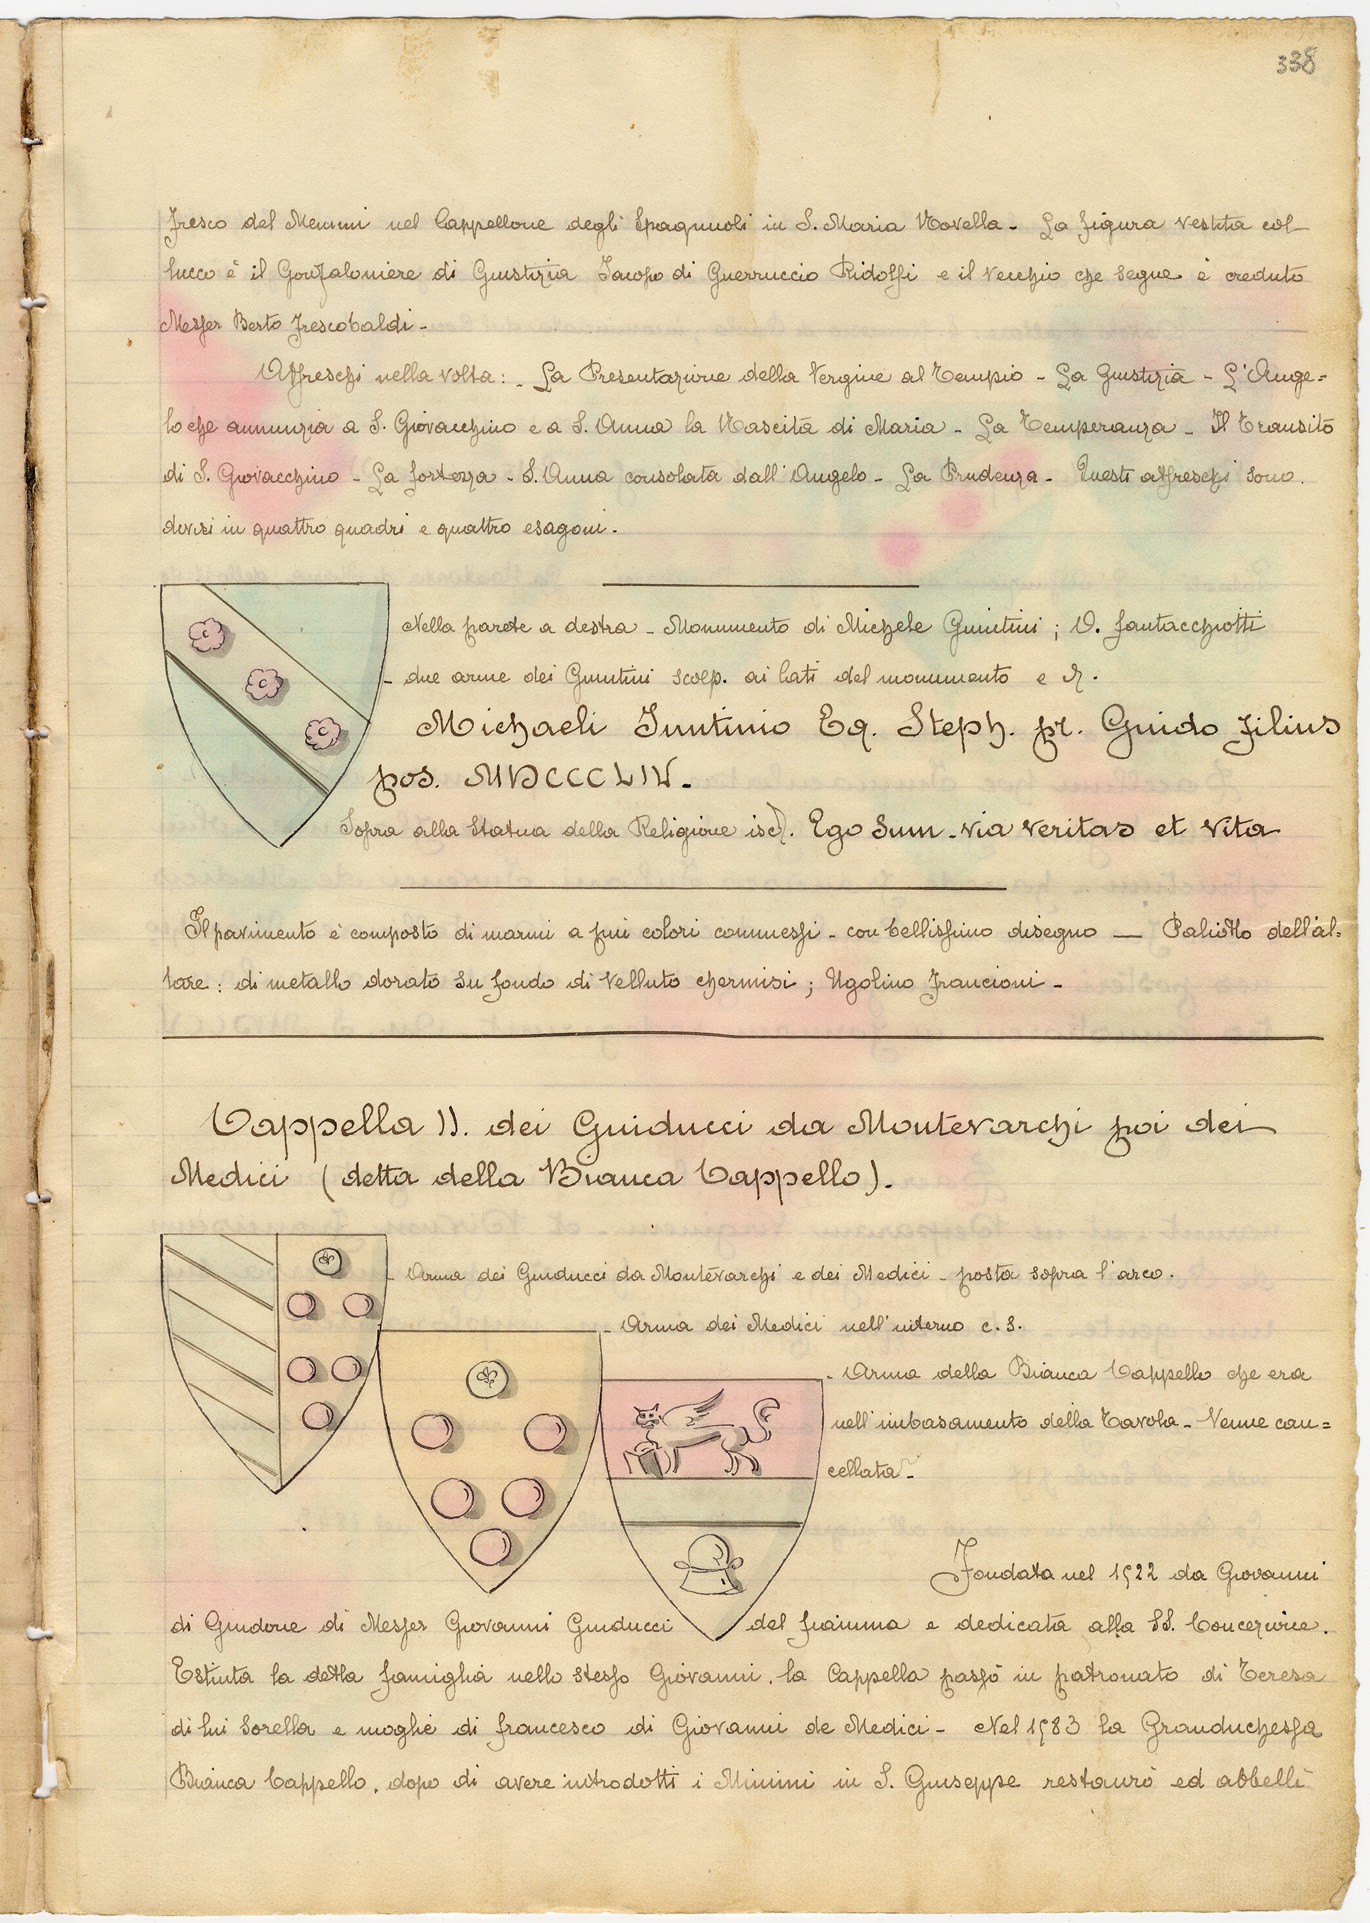 338
fresco del Memmi nel Cappellone degli Spagnuoli in S. Maria Novella - La figura vestita col
lucco è il Gonfaloniere di Giustizia Iacopo di Guerruccio Ridolfi e il vecchio che segue è creduto
Messer Berto Frescobaldi -
Affreschi nella volta: - La Presentazione della Vergine al Tempio - La Giustizia - L'Ange=
lo che annunzia a S. Giovacchino e a S. Anna la Nascita di Maria - La Temperanza - Il Transito
di S. Giovacchino - La Fortezza - S. Anna consolata dall'Angelo - La Prudenza - Questi affreschi sono
divisi in quattro quadri e quattro esagoni.
Nella parete a destra - Monumento di Michele Giuntini; O. Fantacchiotti
- due arme dei Giuntini scolp. ai lati del monumento e
Michaeli Iuntinio Eq. Steph. pr. Guido filius
pos. MDCCCLIV.
Sopra alla Statua della Religione iscr. Ego sum via veritas et vita
Il pavimento è composto di marmi a più colori commessi - con bellissimo disegno — Paliotto dell'al=
tare: di metallo dorato su fondo di velluto chermisi; Ugolino Francioni -
Cappella II. dei Guiducci da Montevarchi poi dei
Medici (detta della Bianca Cappello).
- Arma dei Guiducci da Montevarchi e dei Medici - posta sopra l'arco.
- Arma dei Medici nell'interno c. s.
- Arma della Bianca Cappello che era
nell'imbasamento della Tavola - Venne can=
cellata -
Fondata nel 1522 da Giovanni
di Guidone di Messer Giovanni Guiducci del fiamma e dedicata alla SS. Concezione.
Estinta la detta famiglia nello stesso Giovanni, la Cappella passò in patronato di Teresa
di lui sorella e moglie di Francesco di Giovanni de Medici - Nel 1583 la Granduchessa
Bianca Cappello, dopo di avere introdotti i Minimi in S. Giuseppe restaurò ed abbellì